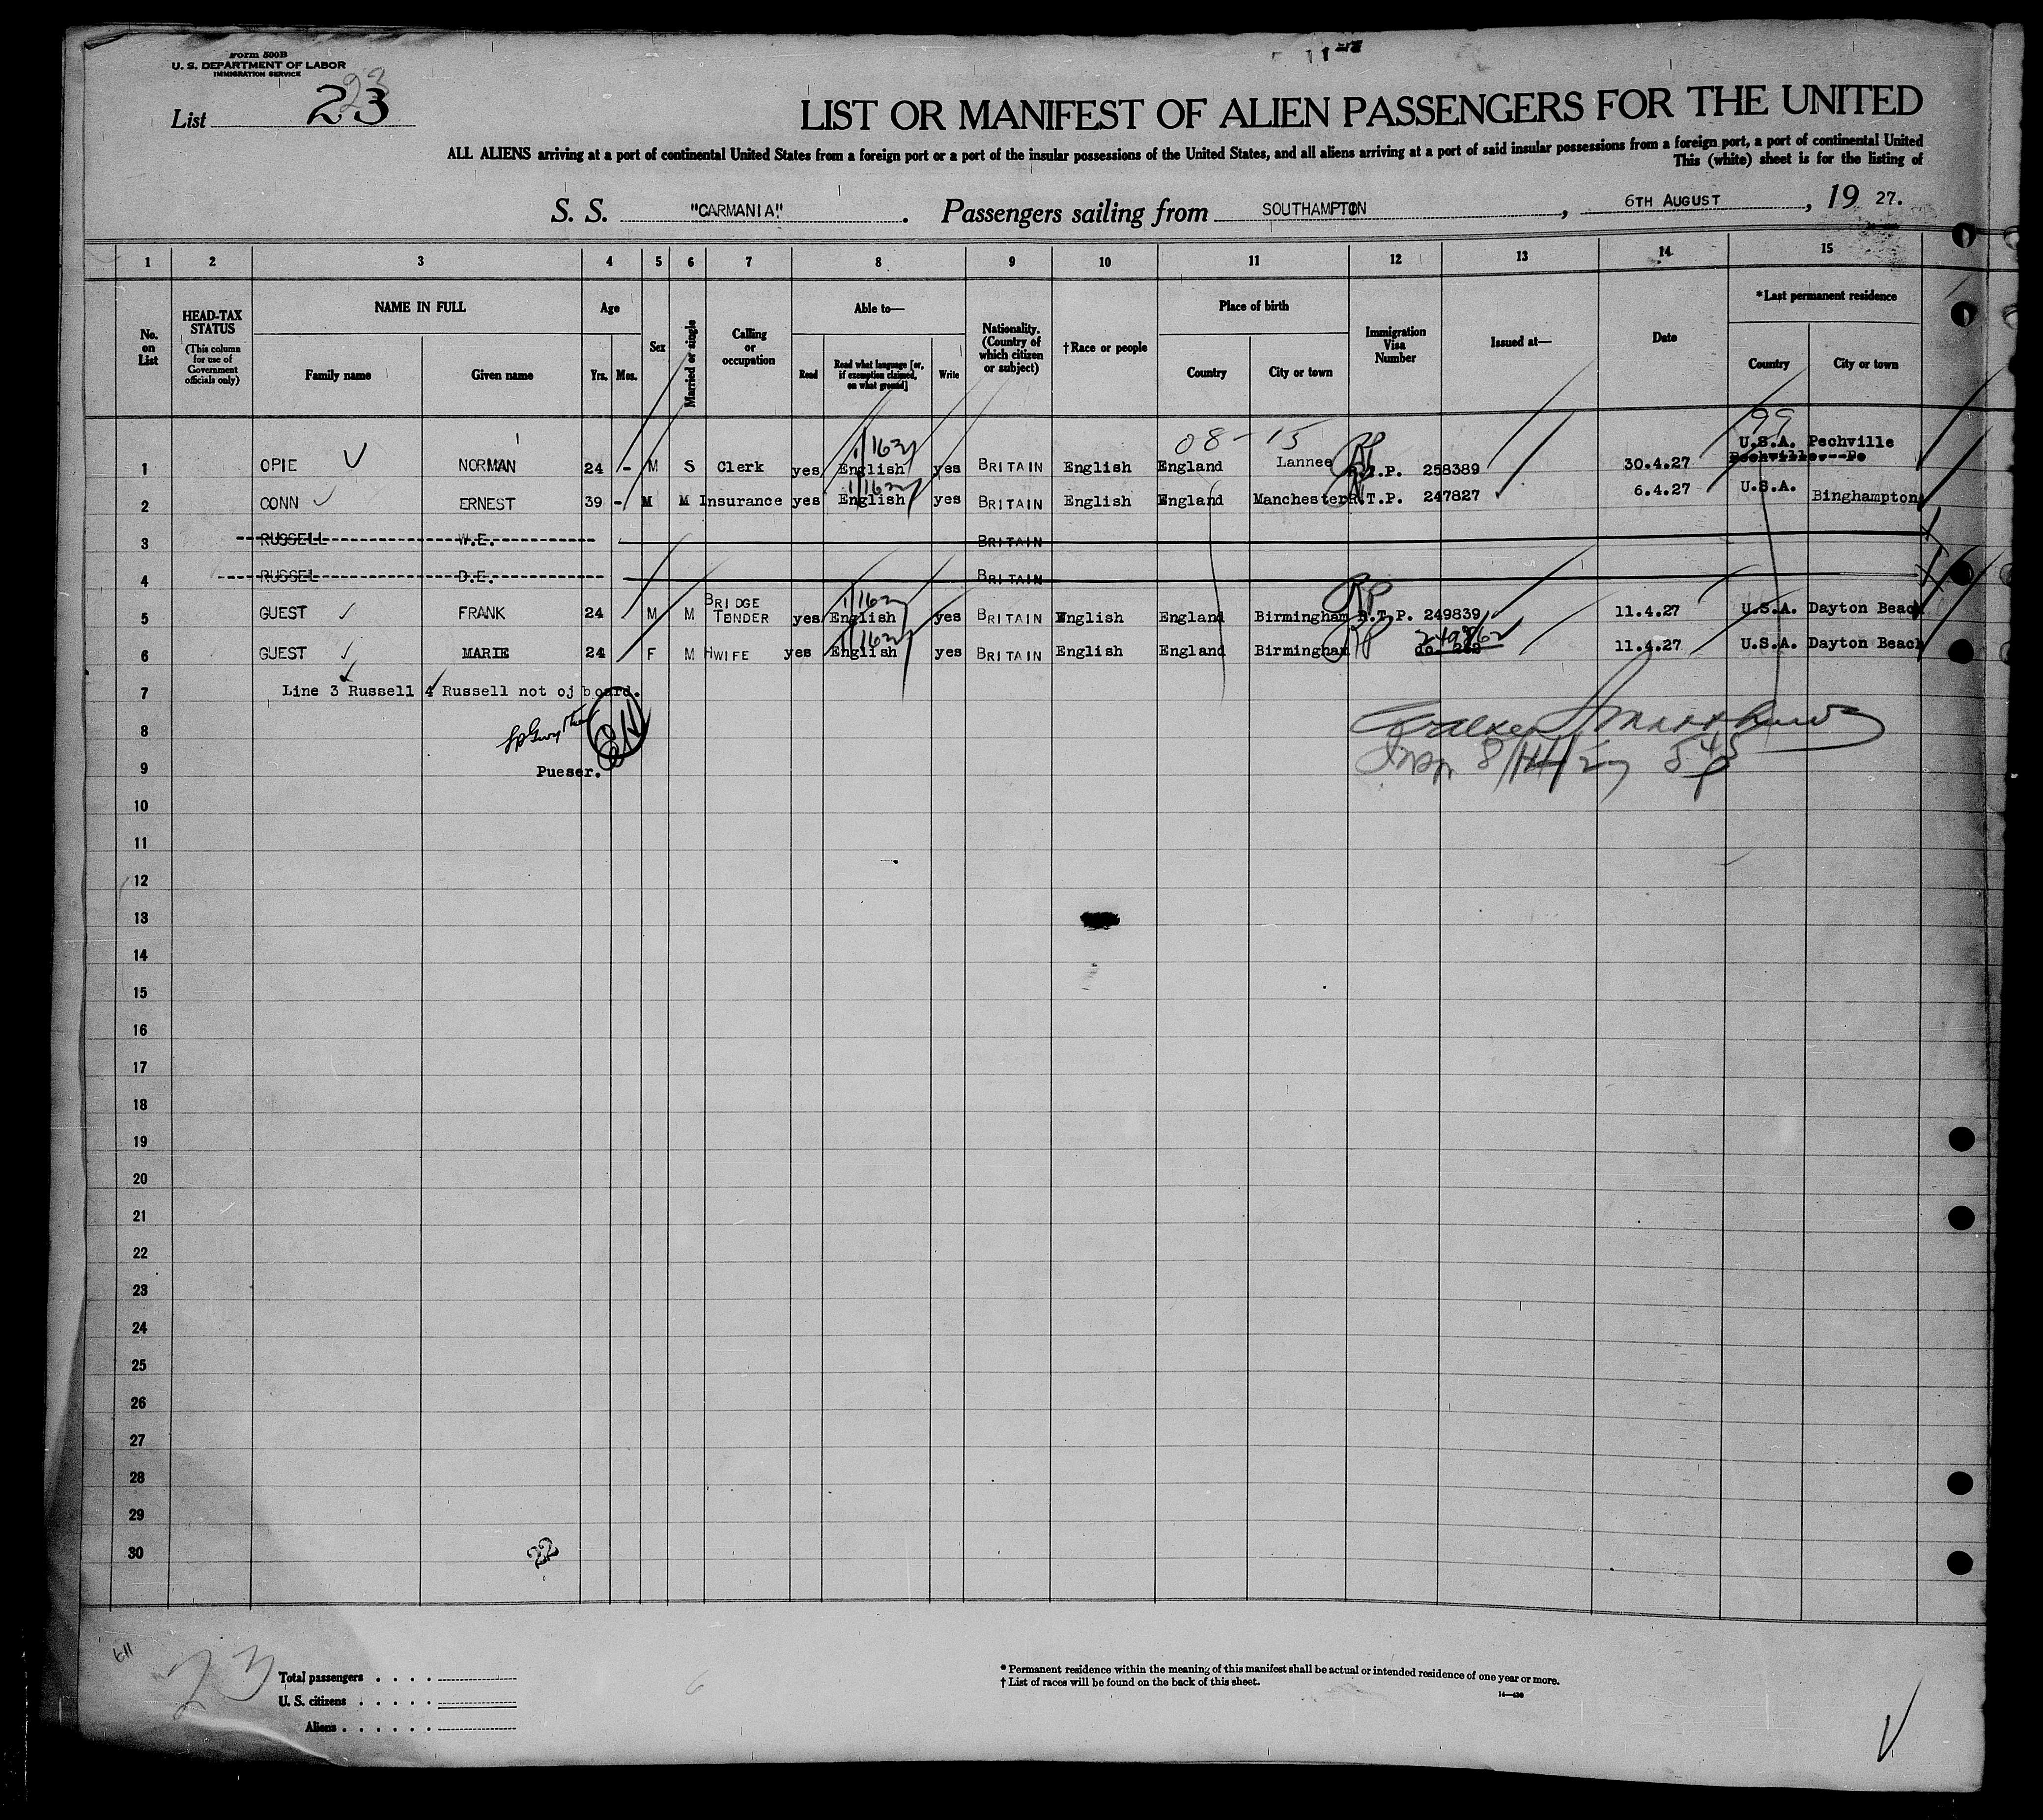 Form 500B
U. S. DEPARTMENT OF LABOR
IMMIGRATION SERVICE
23
List 23
LIST OR MANIFEST OF ALIEN PASSENGERS FOR THE UNITED
ALL ALIENS arriving at a port of continental United States from a foreign port or a port of the insular possessions of the United States, and all aliens arriving at a port of said insular possessions from a foreign port, a port of continental United
This (white) sheet is for the listing of
S. S. "CARMANIA". Passengers sailing from SOUTHAMPTON, 6TH AUGUST, 19 27.
1 2 3 4 5 6 7 8 9 10 11 12 13 14 15
No. on List
HEAD-TAX STATUS (This column for use of Government officials only)
NAME IN FULL
Family name
Given name
Age
Yrs. Mos.
Sex
Married or single
Calling or occupation
Able to—
Read
Read what language [or, if exemption claimed, on what ground]
Write
Nationality. (Country of which citizen or subject)
†Race or people
Place of birth
Country
City or town
Immigration Visa Number
Issued at—
Date
*Last permanent residence
Country
City or town
08-15 99
1 OPIE NORMAN 24 - M S Clerk yes English yes BRITAIN English England Lannee .T.P. 258389 30.4.27 U.S.A. Pechville
2 CONN ERNEST 39 - M M Insurance yes English yes BRITAIN English England Manchester R.T.P. 247827 6.4.27 U.S.A. Binghampton
3 RUSSELL W.E. BRITAIN
4 RUSSEL D.E. BRITAIN
5 GUEST FRANK 24 M M BRIDGE TENDER yes English yes BRITAIN English England Birmingham R.T.P. 249839 11.4.27 U.S.A. Dayton Beach
6 GUEST MARIE 24 F M HWIFE yes English yes BRITAIN English England Birmingham 249862 11.4.27 U.S.A. Dayton Beach
7 Line 3 Russell 4 Russell not oj board.
8
9 Pueser.
10
11
12
13
14
15
16
17
18
19
20
21
22
23
24
25
26
27
28
29
30
22
611
23
Total passengers
U. S. citizens
Aliens
6
* Permanent residence within the meaning of this manifest shall be actual or intended residence of one year or more.
† List of races will be found on the back of this sheet.